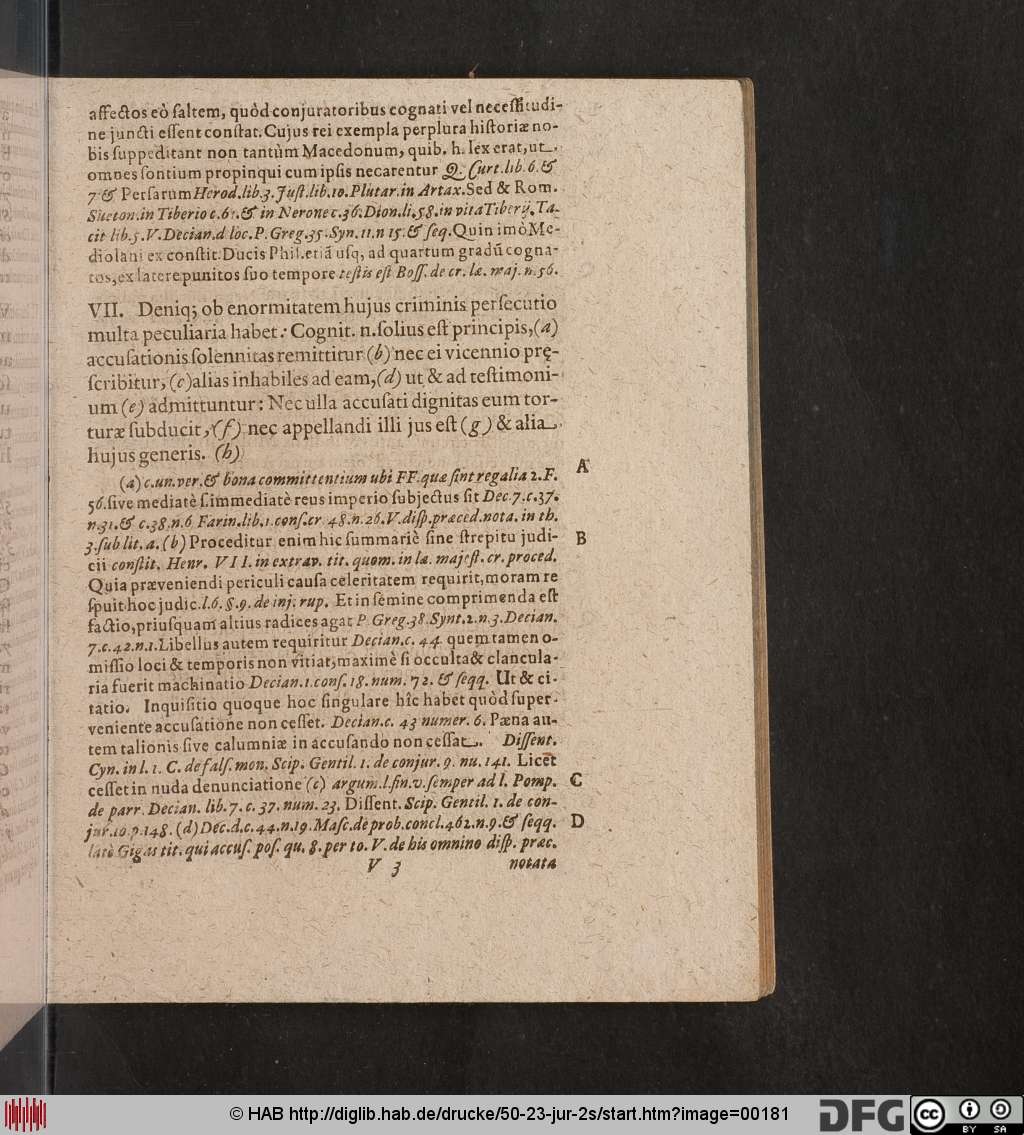 affectos eò ſaltem, quòd conjuratoribus cognati vel neceſſitudi-
ne juncti eſſent conſtat. Cujus rei exempla perplura hiſtoriæ no-
bis ſuppeditant non tantùm Macedonum, quib. h. lex erat, ut
omnes ſontium propinqui cum ipſis necarentur Q. Curt. lib. 6. &
7 & Perſarum Herod. lib. 3. Juſt. lib. 10. Plutar. in Artax. Sed & Rom.
Sueton. in Tiberio c. 61. & in Nerone c. 36. Dion. li. 58. in vita Tiberij. Ta-
cit lib. 5. V. Decian. d loc. P. Greg. 35. Syn. 11. n 15. & ſeq. Quin imò Me-
diolani ex conſtit. Ducis Phil. etiã uſq; ad quartum gradũ cogna-
tos, ex latere punitos ſuo tempore teſtis eſt Boſſ. de cr. læ. maj. n. 56.
VII. Deniq; ob enormitatem hujus criminis perſecutio
multa peculiaria habet: Cognit. n. ſolius eſt principis, (a)
accuſationis ſolennitas remittitur (b) nec ei vicennio prę-
ſcribitur, (c) alias inhabiles ad eam, (d) ut & ad teſtimoni-
um (e) admittuntur: Nec ulla accuſati dignitas eum tor-
turæ ſubducit, (f) nec appellandi illi jus eſt (g) & alia
hujus generis. (h)
(a) c. un. ver. & bona committentium ubi FF. quæ ſint regalia 2. F.
A
56. ſive mediatè ſ. immediatè reus imperio ſubjectus ſit Dec. 7. c. 37.
n. 31. & c. 38. n. 6 Farin. lib. 1. conſ. cr. 48. n. 26. V. diſp. præced. nota. in th.
3. ſub lit. a. (b) Proceditur enim hic ſummariè ſine ſtrepitu judi-
B
cii conſtit. Henr. VII. in extrav. tit. quom. in læ. majeſt. cr. proced.
Quia præveniendi periculi cauſa celeritatem requirit, moram re
ſpuit hoc judic. l. 6. §. 9. de inj. rup. Et in ſemine comprimenda eſt
factio, priuſquam altius radices agat P. Greg. 38. Synt. 2. n. 3. Decian.
7. c. 42. n. 1. Libellus autem requiritur Decian. c. 44. quem tamen o-
miſſio loci & temporis non vitiat, maximè ſi occulta & clancula-
ria fuerit machinatio Decian. 1. conſ. 18. num. 72. & ſeqq. Ut & ci-
tatio. Inquiſitio quoque hoc ſingulare hîc habet quòd ſuper-
veniente accuſatione non ceſſet. Decian. c. 43 numer. 6. Pæna au-
tem talionis ſive calumniæ in accuſando non ceſſat. Diſſent.
Cyn. in l. 1. C. de falſ. mon. Scip. Gentil. 1. de conjur. 9. nu. 141. Licet
ceſſet in nuda denunciatione (c) argum. l. fin. v. ſemper ad l. Pomp.
C
de parr. Decian. lib. 7. c. 37. num. 23. Diſſent. Scip. Gentil. 1. de con-
jur. 10. p. 148. (d) Dec. d. c. 44. n. 19. Maſc. de prob. concl. 462. n. 9. & ſeqq.
D
latè Gigas tit. qui accuſ. poſ. qu. 8. per to. V. de his omnino diſp. præc.
V 3
notata
© HAB http://diglib.hab.de/drucke/50-23-jur-2s/start.htm?image=00181
DFG
cc
BY SA